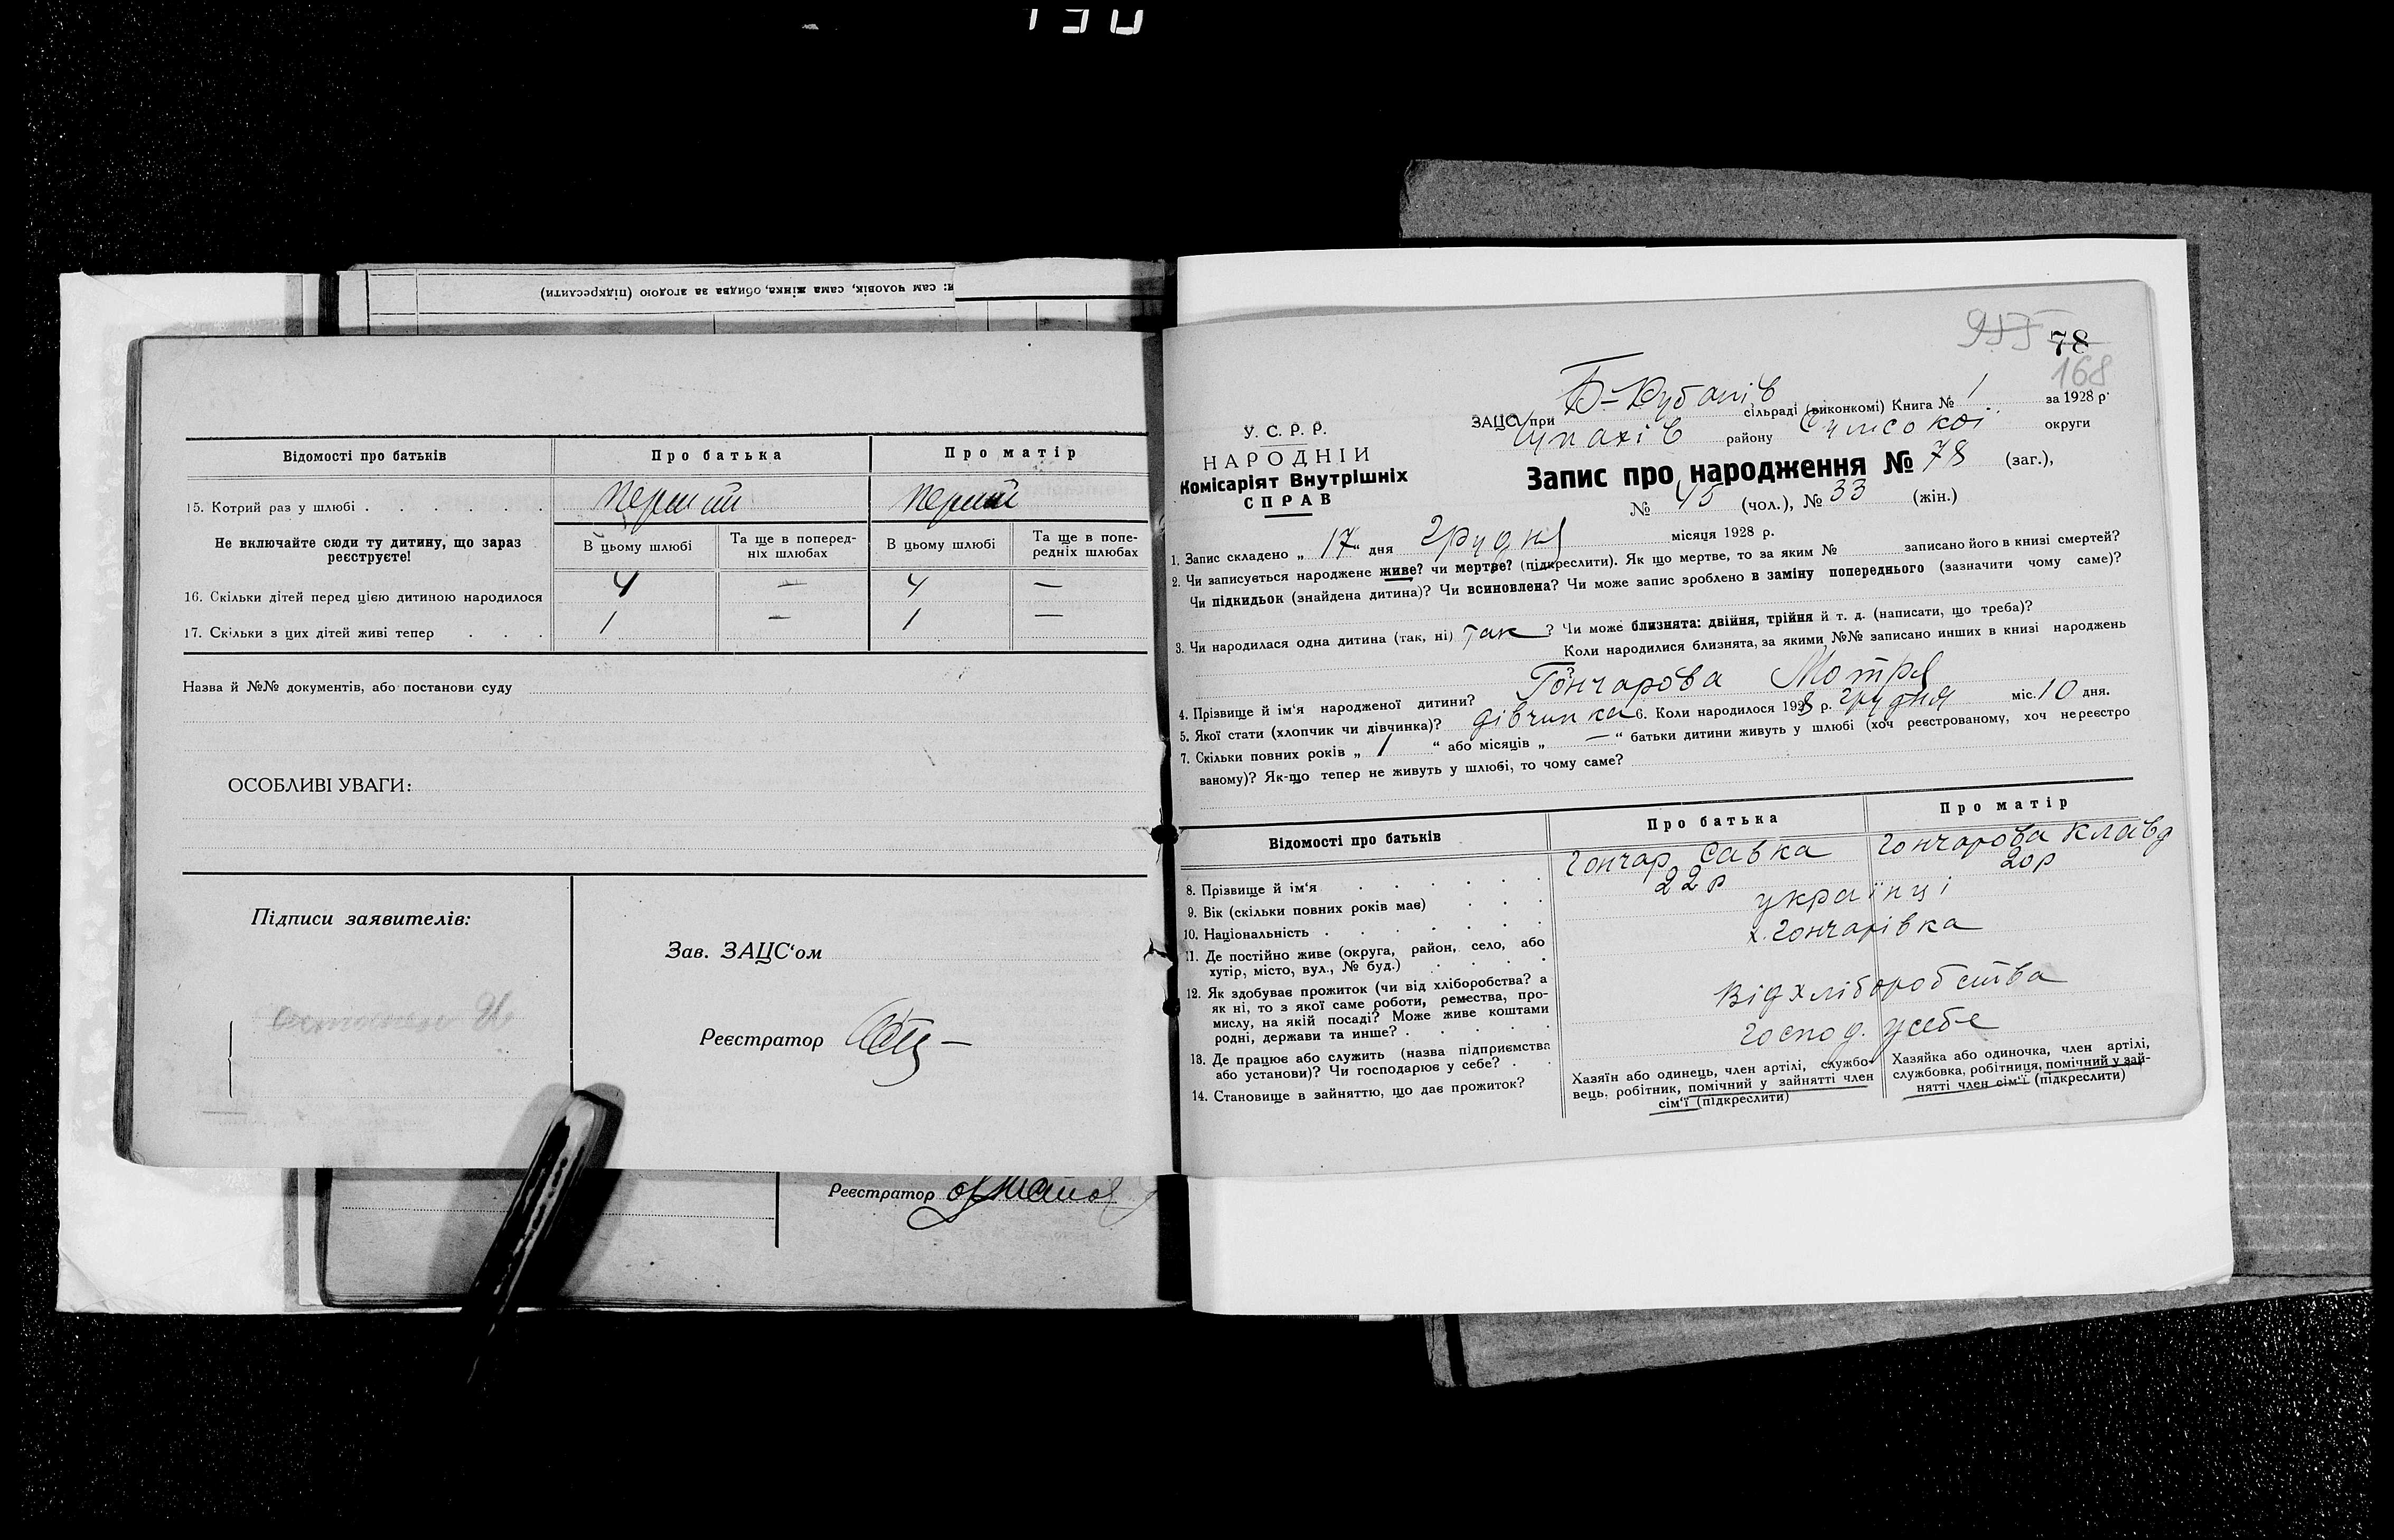 и: сам чоловік, сама жінка, обидва за згодою (підкреслити)
Відомості про батьків
Про батька
Про матір
15. Котрий раз у шлюбі . . . . . .
перший
перший
Не включайте сюди ту дитину, що зараз реєструєте!
В цьому шлюбі
Та ще в поперед-
ніх шлюбах
В цьому шлюбі
Та ще в попе-
редніх шлюбах
16. Скільки дітей перед цією дитиною народилося
4 — 4 —
17. Скільки з цих дітей живі тепер . . .
1 — 1 —
Назва й №№ документів, або постанови суду
ОСОБЛИВІ УВАГИ:
Підписи заявителів:
Зав. ЗАЦС‘ом
Реєстратор
Реєстратор
78
168
У. С. Р. Р.
НАРОДНІЙ
Комісаріят Внутрішніх
СПРАВ
ЗАЦС при Б-Рубанів сільраді (виконкомі) Книга № 1 за 1928 р.
Чупахів району Сумської округи
Запис про народження № 78 (заг.),
№ 45 (чол.), № 33 (жін.)
1. Запис складено „ 17 “ дня грудня місяця 1928 р.
2. Чи записується народжене живе? чи мертве? (підкреслити). Як що мертве, то за яким № записано його в книзі смертей?
Чи підкидьок (знайдена дитина)? Чи всиновлена? Чи може запис зроблено в заміну попереднього (зазначити чому саме)?
3. Чи народилася одна дитина (так, ні) так ? Чи може близнята: двійня, трійня й т. д. (написати, що треба)?
Коли народилися близнята, за якими №№ записано инших в книзі народжень
?
4. Прізвище й ім‘я народженої дитини? Гончарова Мотря
5. Якої стати (хлопчик чи дівчинка)? дівчинка 6. Коли народилося 1928 р. грудня міс. 10 дня.
7. Скільки повних років „ 1 “ або місяців „ — “ батьки дитини живуть у шлюбі (хоч реєстрованому, хоч нереєстро
ваному)? Як-що тепер не живуть у шлюбі, то чому саме?
Відомості про батьків
Про батька
Про матір
8. Прізвище й ім‘я . . . . . .
Гончар Савка
Гончарова Клавд
9. Вік (скільки повних років має) . . .
22 р
20 р
10. Національність . . . . . .
українці
11. Де постійно живе (округа, район, село, або
хутір, місто, вул., № буд.) . . . .
х. Гончарівка
12. Як здобуває прожиток (чи від хліборобства? а
як ні, то з якої саме роботи, ремества, про-
мислу, на якій посаді? Може живе коштами
родні, держави та инше? . . . . .
Від хліборобства
13. Де працює або служить (назва підприємства
або установи)? Чи господарює у себе? . .
господ. у себе
14. Становище в зайняттю, що дає прожиток?
Хазяїн або одинець, член артілі, службо-
вець, робітник, помічний у зайнятті член
сім‘ї (підкреслити)
Хазяйка або одиночка, член артілі,
службовка, робітниця, помічний у зай-
нятті член сім‘ї (підкреслити)